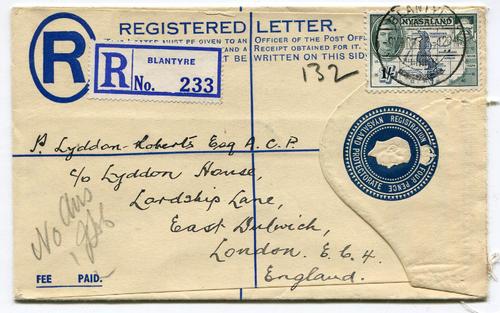 REGISTERED LETTER.
MUST BE GIVEN TO AN OFFICER OF THE POST OFFICE
AND A RECEIPT OBTAINED FOR IT.
BE WRITTEN ON THIS SIDE
R
R
BLANTYRE
No. 233
132
NYASALAND
1/-
NYASALAND PROTECTORATE
REGISTRATION
FOUR PENCE
P. Lyddon-Roberts Esq A.C.P.
c/o Lyddon House,
Lordship Lane,
East Dulwich,
London. E.C.4.
England.
No Ans
FEE PAID.